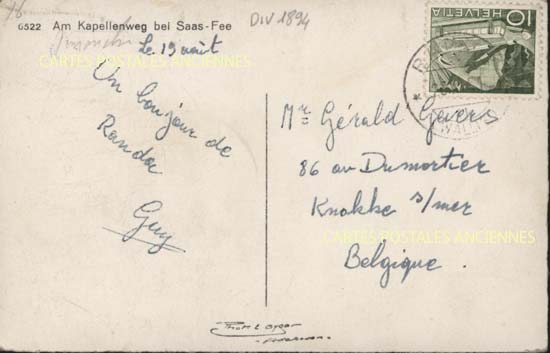 6522 Am Kapellenweg bei Saas-Fee
DIV 1894
Le 19 août
CARTES POSTALES ANCIENNES
Un bonjour de
Randa
Guy
HELVETIA
10
Mr Gérald Gevers
86 av Dumortier
Knokke s/mer
CARTES POSTALES ANCIENNES
Belgique.